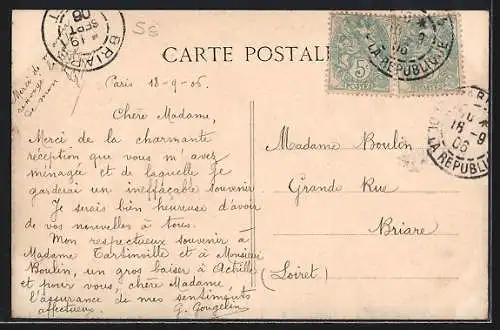 56
CARTE POSTALE
BRIARE
19
SEPT
06
5
18 -9
06
LA REPUBLIQUE
Paris 18-9-06
Merci de
mon
Chère Madame,
Merci de la charmante
réception que vous m'avez
ménagée et de laquelle je
garderai un ineffaçable souvenir
Je serais bien heureuse d'avoir
de vos nouvelles à tous.
Mon respectueux souvenir à
Madame Tartinville et à Monsieur
Boulin, un gros baiser à Achille
et pour vous, chère Madame,
l'assurance de mes sentiments
affectueux.
G. Gougelin
Madame Boulin
Grande Rue
Briare
(Loiret)
18 -9
06
LA REPUBLIQUE